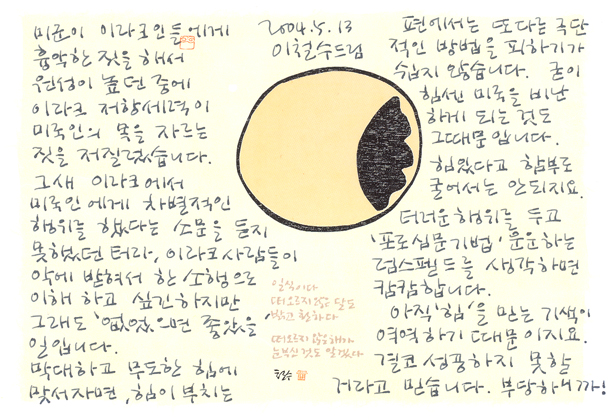 미군이 이라크인들에게
흉악한 짓을 해서
원성이 높던 중에
이라크 저항세력이
미국인의 목을 자르는
짓을 저질렀습니다.
그새 이라크에서
미국인에게 차별적인
행위를 했다는 소문을 듣지
못했던 터라, 이라크사람들이
악에 받쳐서 한 소행으로
이해 하고 싶긴하지만
그래도 '없었으면 좋았을'
일입니다.
막대하고 무도한 힘에
맞서자면, 힘이 부치는
2004.5.13
이철수드림
일식이다
떠오르지 않은 달도
밝고 환하다
떠오르지 않은 해가
눈부신 것도 알겠다
편에서는 또다른 극단
적인 방법을 피하기가
쉽지 않습니다. 굳이
힘센 미국을 비난
하게 되는 것도
그때문입니다.
힘있다고 함부로
굴어서는 안되지요.
더러운행위를 두고
'포로심문기법' 운운하는
럼스펠드를 생각하면
캄캄합니다.
아직 '힘'을 믿는 기색이
역력하기 때문이지요.
결코 성공하지 못할
거라고 믿습니다. 부당하니까!